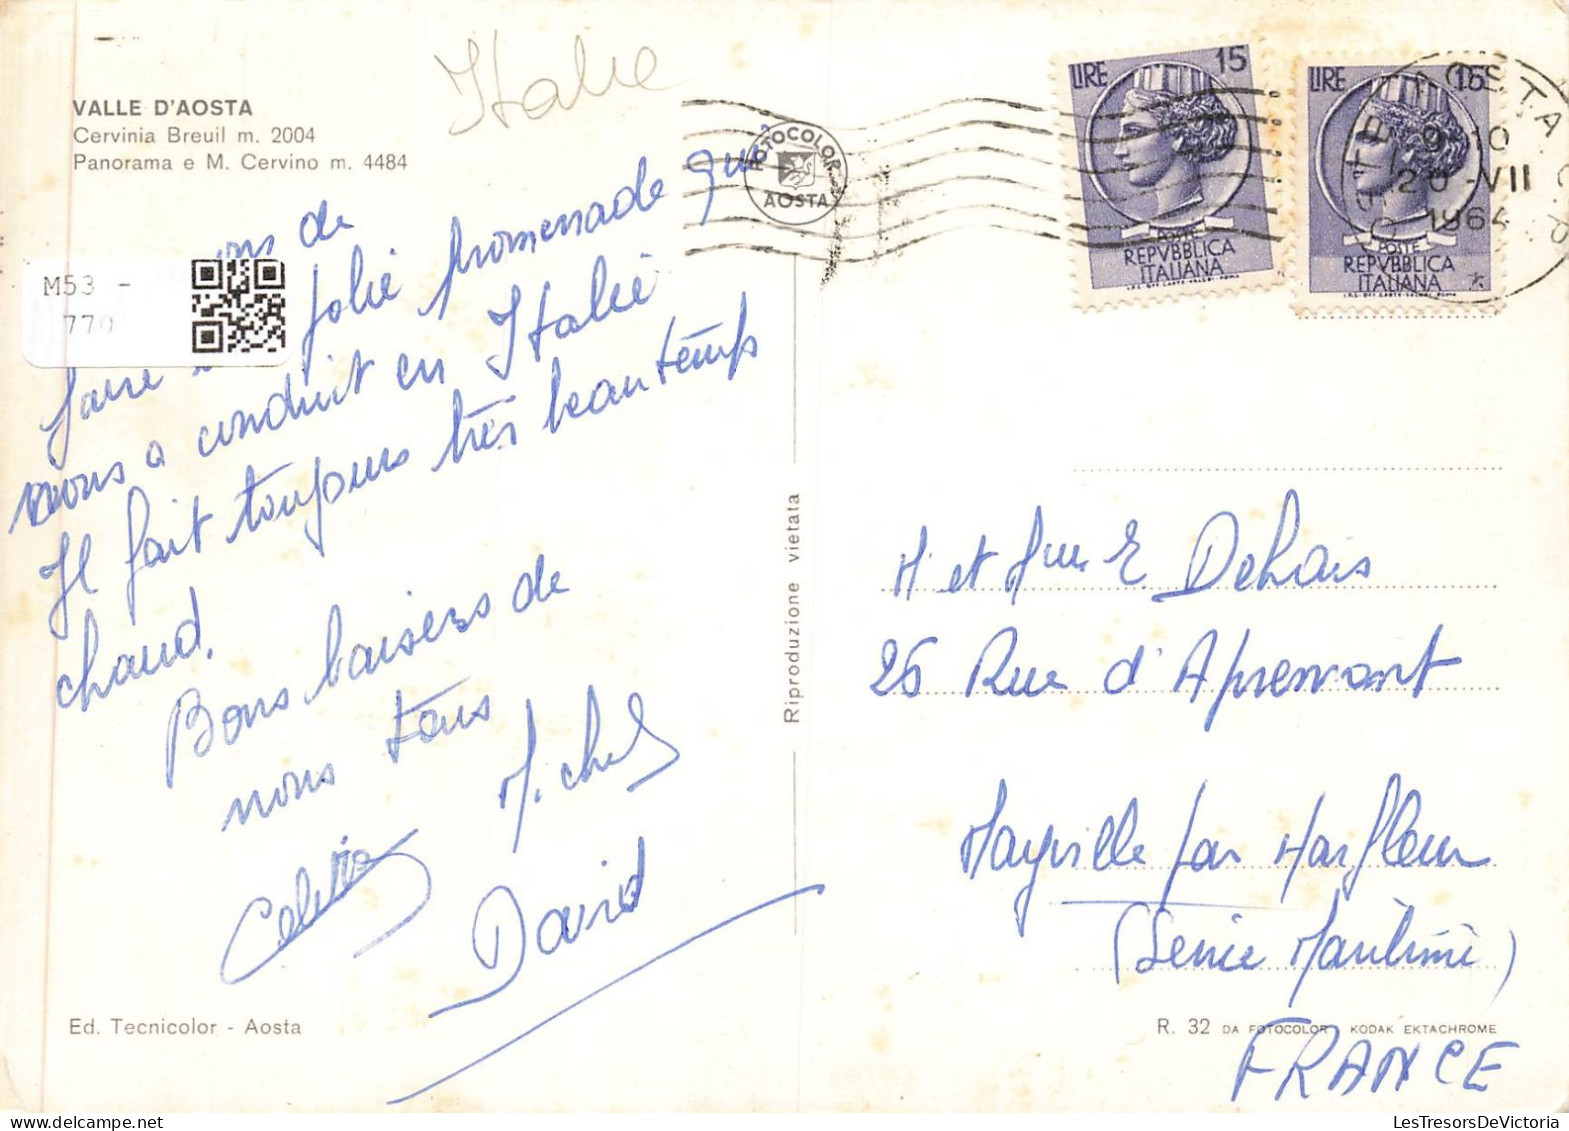 VALLE D'AOSTA
Cervinia Breuil m. 2004
Panorama e M. Cervino m. 4484
Italie
FOTOCOLOR
AOSTA
LIRE 15
POSTE
REPVBBLICA
ITALIANA
I.P.S. OFF. CARTE-VALORI - ROMA
LIRE 15
POSTE
REPVBBLICA
ITALIANA
I.P.S. OFF. CARTE-VALORI - ROMA
AOSTA
9-10
20-VII
1964
M53 -
770
ons de
faire jolie promenade qui
nous a conduit en Italie
Il fait toujours très beau temps
chaud.
Bons baisers de
nous tous
Michel
David
Riproduzione vietata
M et Mme E Dehais
26 Rue d'Apremont
Mayville par Harfleur
(Seine Maritime)
FRANCE
Ed. Tecnicolor - Aosta
R. 32 DA FOTOCOLOR KODAK EKTACHROME
LesTresorsDeVictoria.com